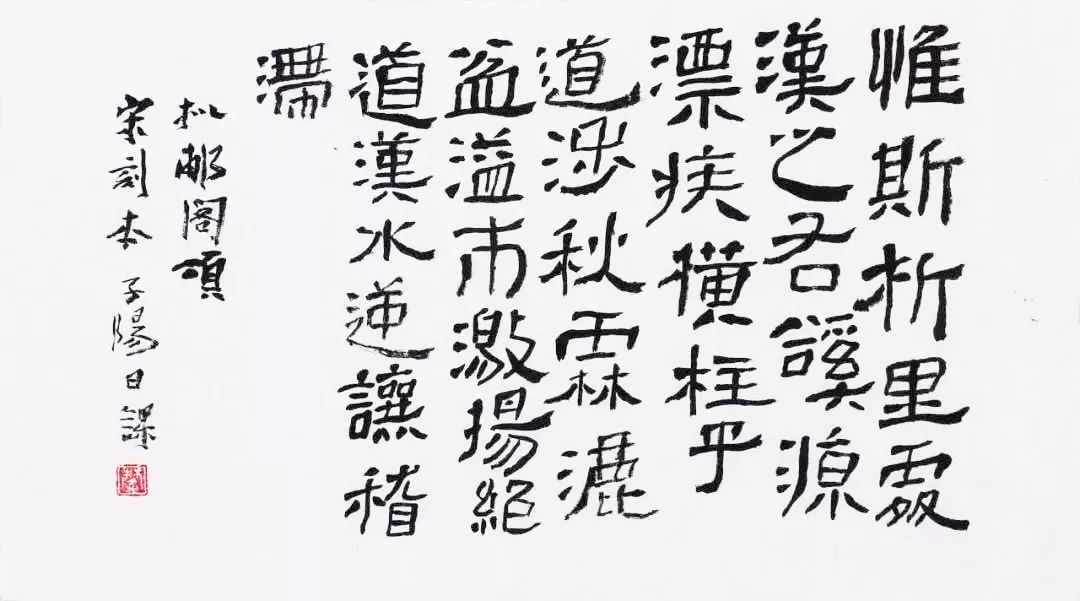 惟斯析里處
漢之右谿源
漂疾横柱于
道涉秋霖漉
盆溢市激揚絶
道漢水逆讓稽
滯
拟郙閣頌
宋刻本 子陽日課